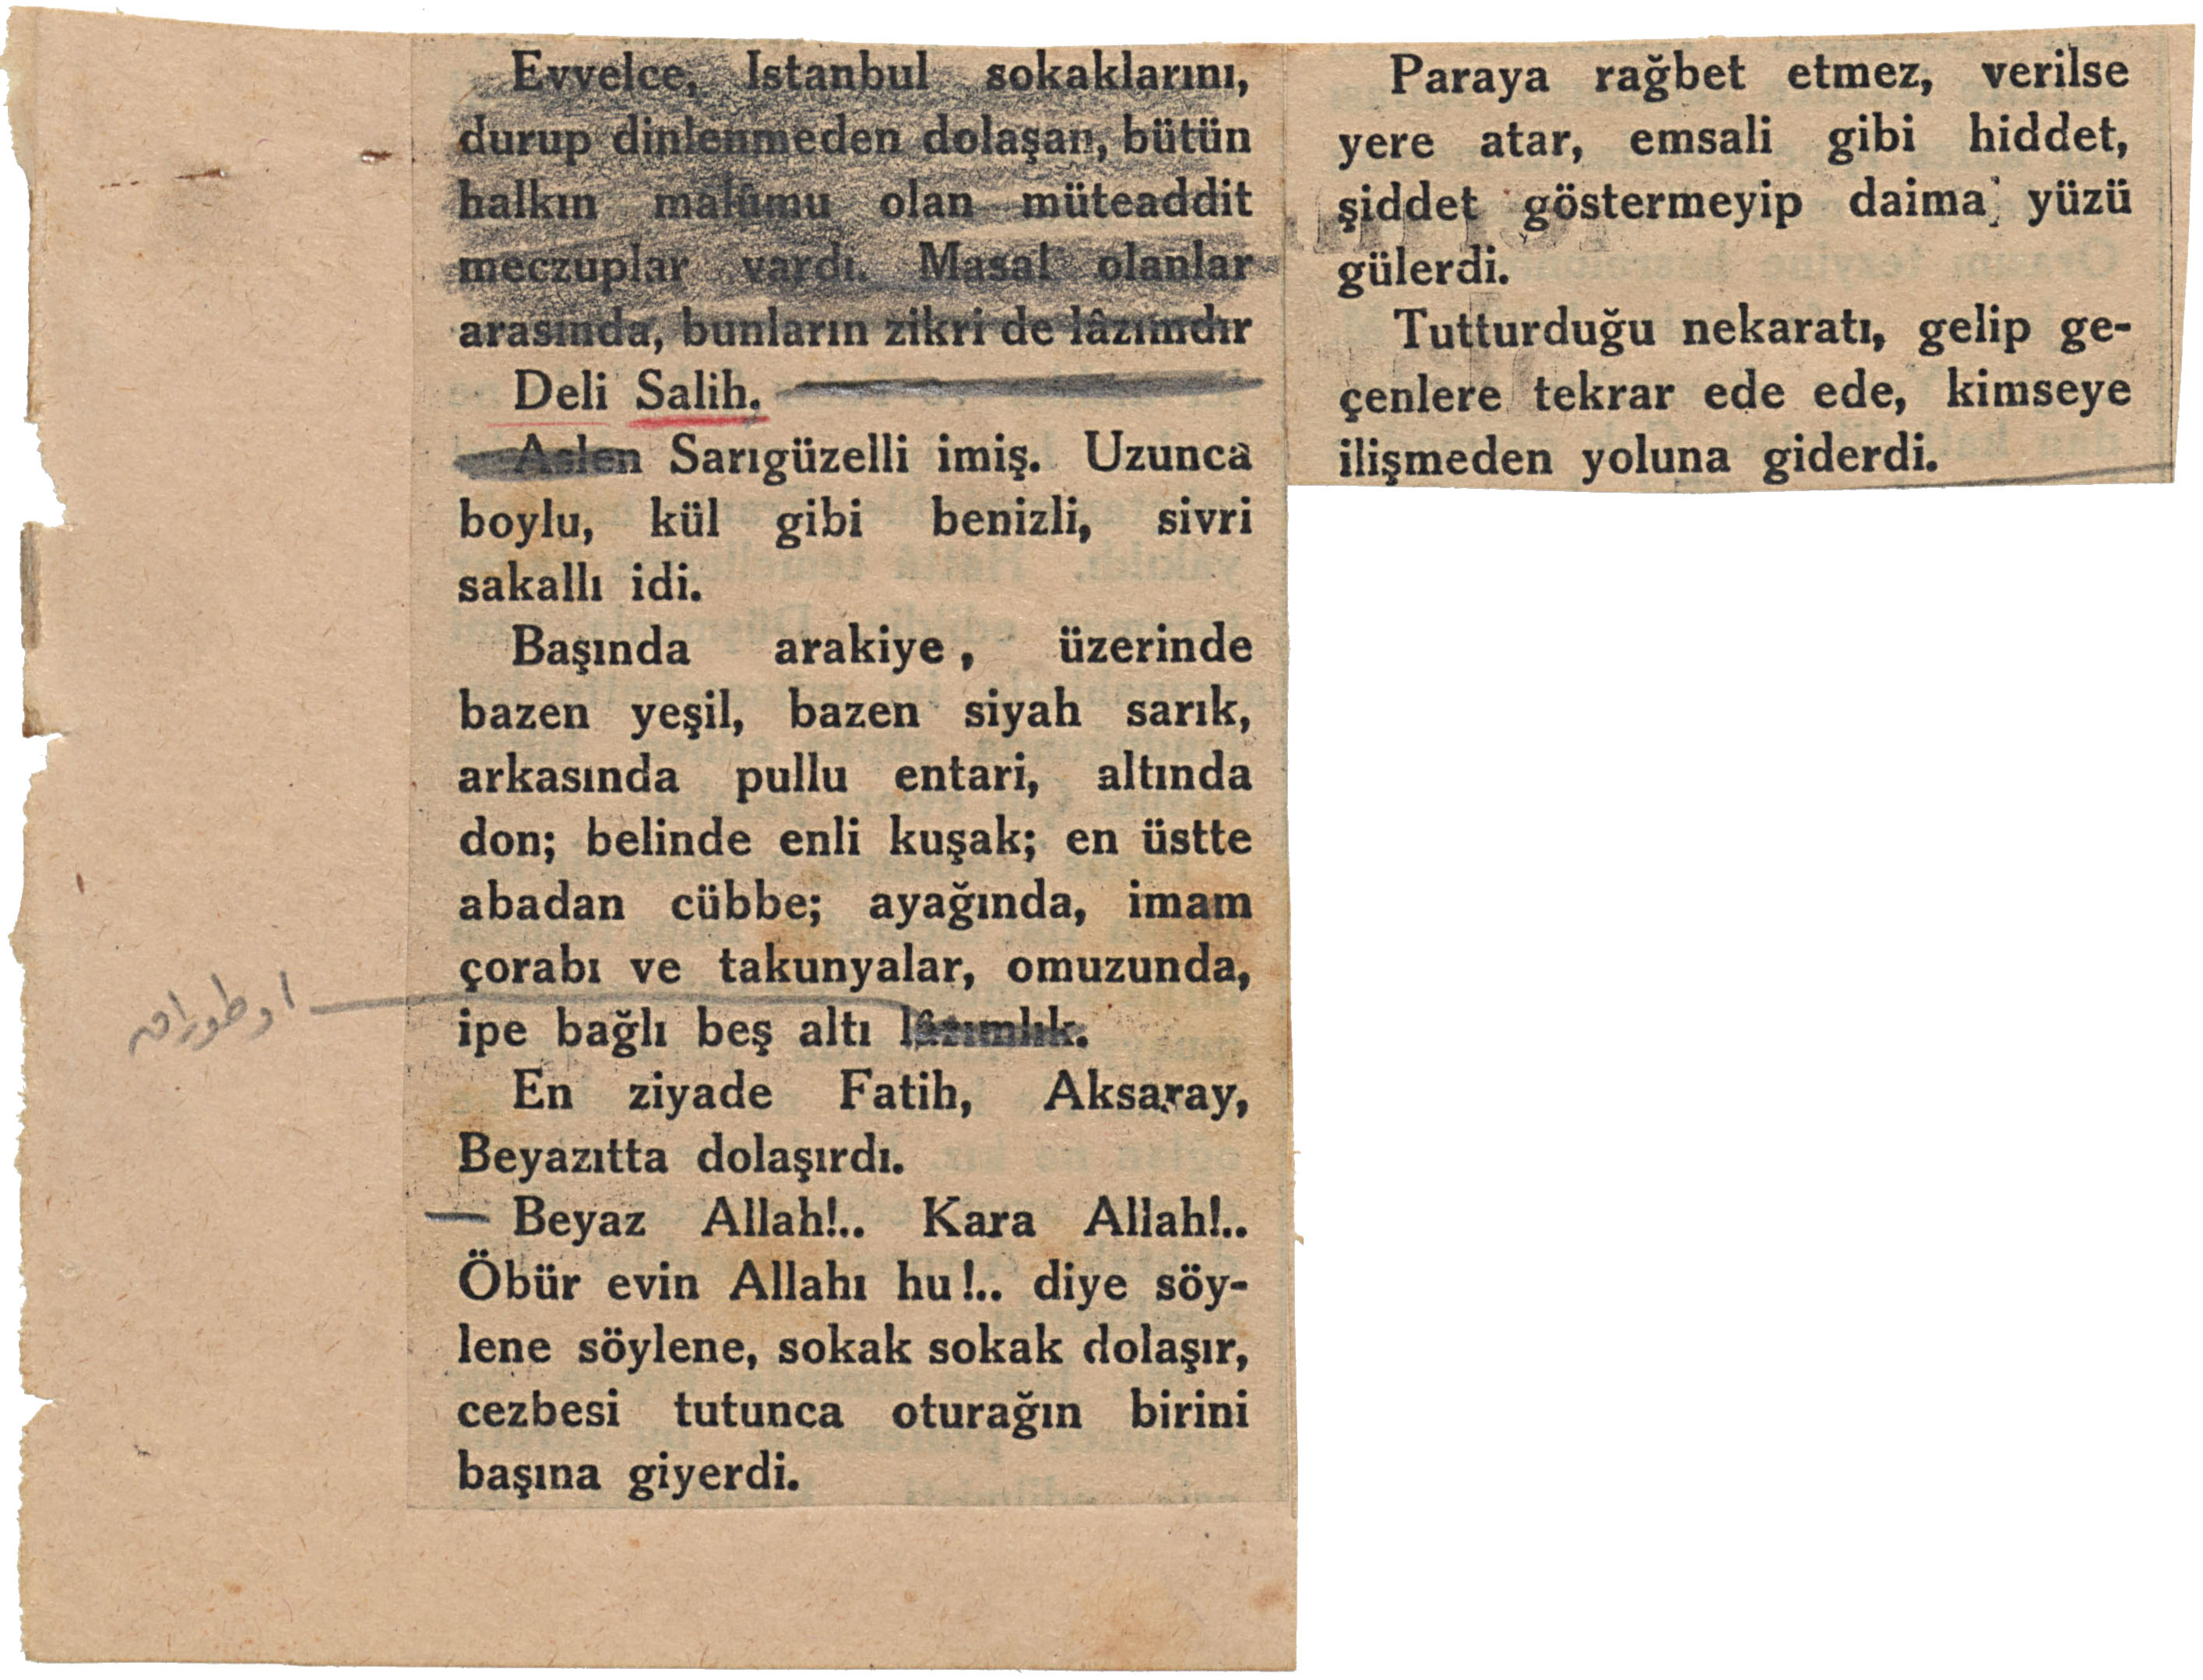 Evvelce, Istanbul sokaklarını,
durup dinlenmeden dolaşan, bütün
halkın malûmu olan müteaddit
meczuplar vardı. Masal olanlar
arasında, bunların zikri de lâzımdır
Deli Salih.
Aslen Sarıgüzelli imiş. Uzunca
boylu, kül gibi benizli, sivri
sakallı idi.
Başında arakiye, üzerinde
bazen yeşil, bazen siyah sarık,
arkasında pullu entari, altında
don; belinde enli kuşak; en üstte
abadan cübbe; ayağında, imam
çorabı ve takunyalar, omuzunda,
اوطوراق
ipe bağlı beş altı lâzımlık.
En ziyade Fatih, Aksaray,
Beyazıtta dolaşırdı.
— Beyaz Allah!.. Kara Allah!..
Öbür evin Allahı hu!.. diye söy-
lene söylene, sokak sokak dolaşır,
cezbesi tutunca oturağın birini
başına giyerdi.
Paraya rağbet etmez, verilse
yere atar, emsali gibi hiddet,
şiddet göstermeyip daima yüzü
gülerdi.
Tutturduğu nekaratı, gelip ge-
çenlere tekrar ede ede, kimseye
ilişmeden yoluna giderdi.